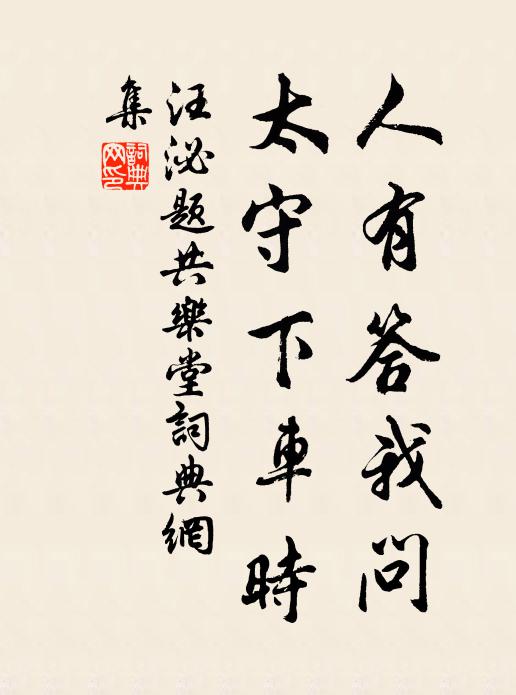 人有答我問
太守下車時
汪泌題共樂堂詞典網
集
詞典網印